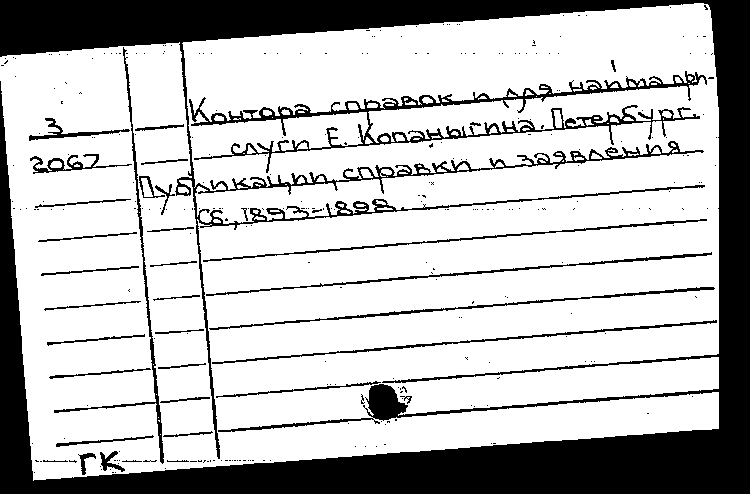 3
2067
Контора справок и для найма при-
слуги Е. Копаныгина. Петербург.
Публикации, справки и заявления
Сб., 1893-1898.
ГК